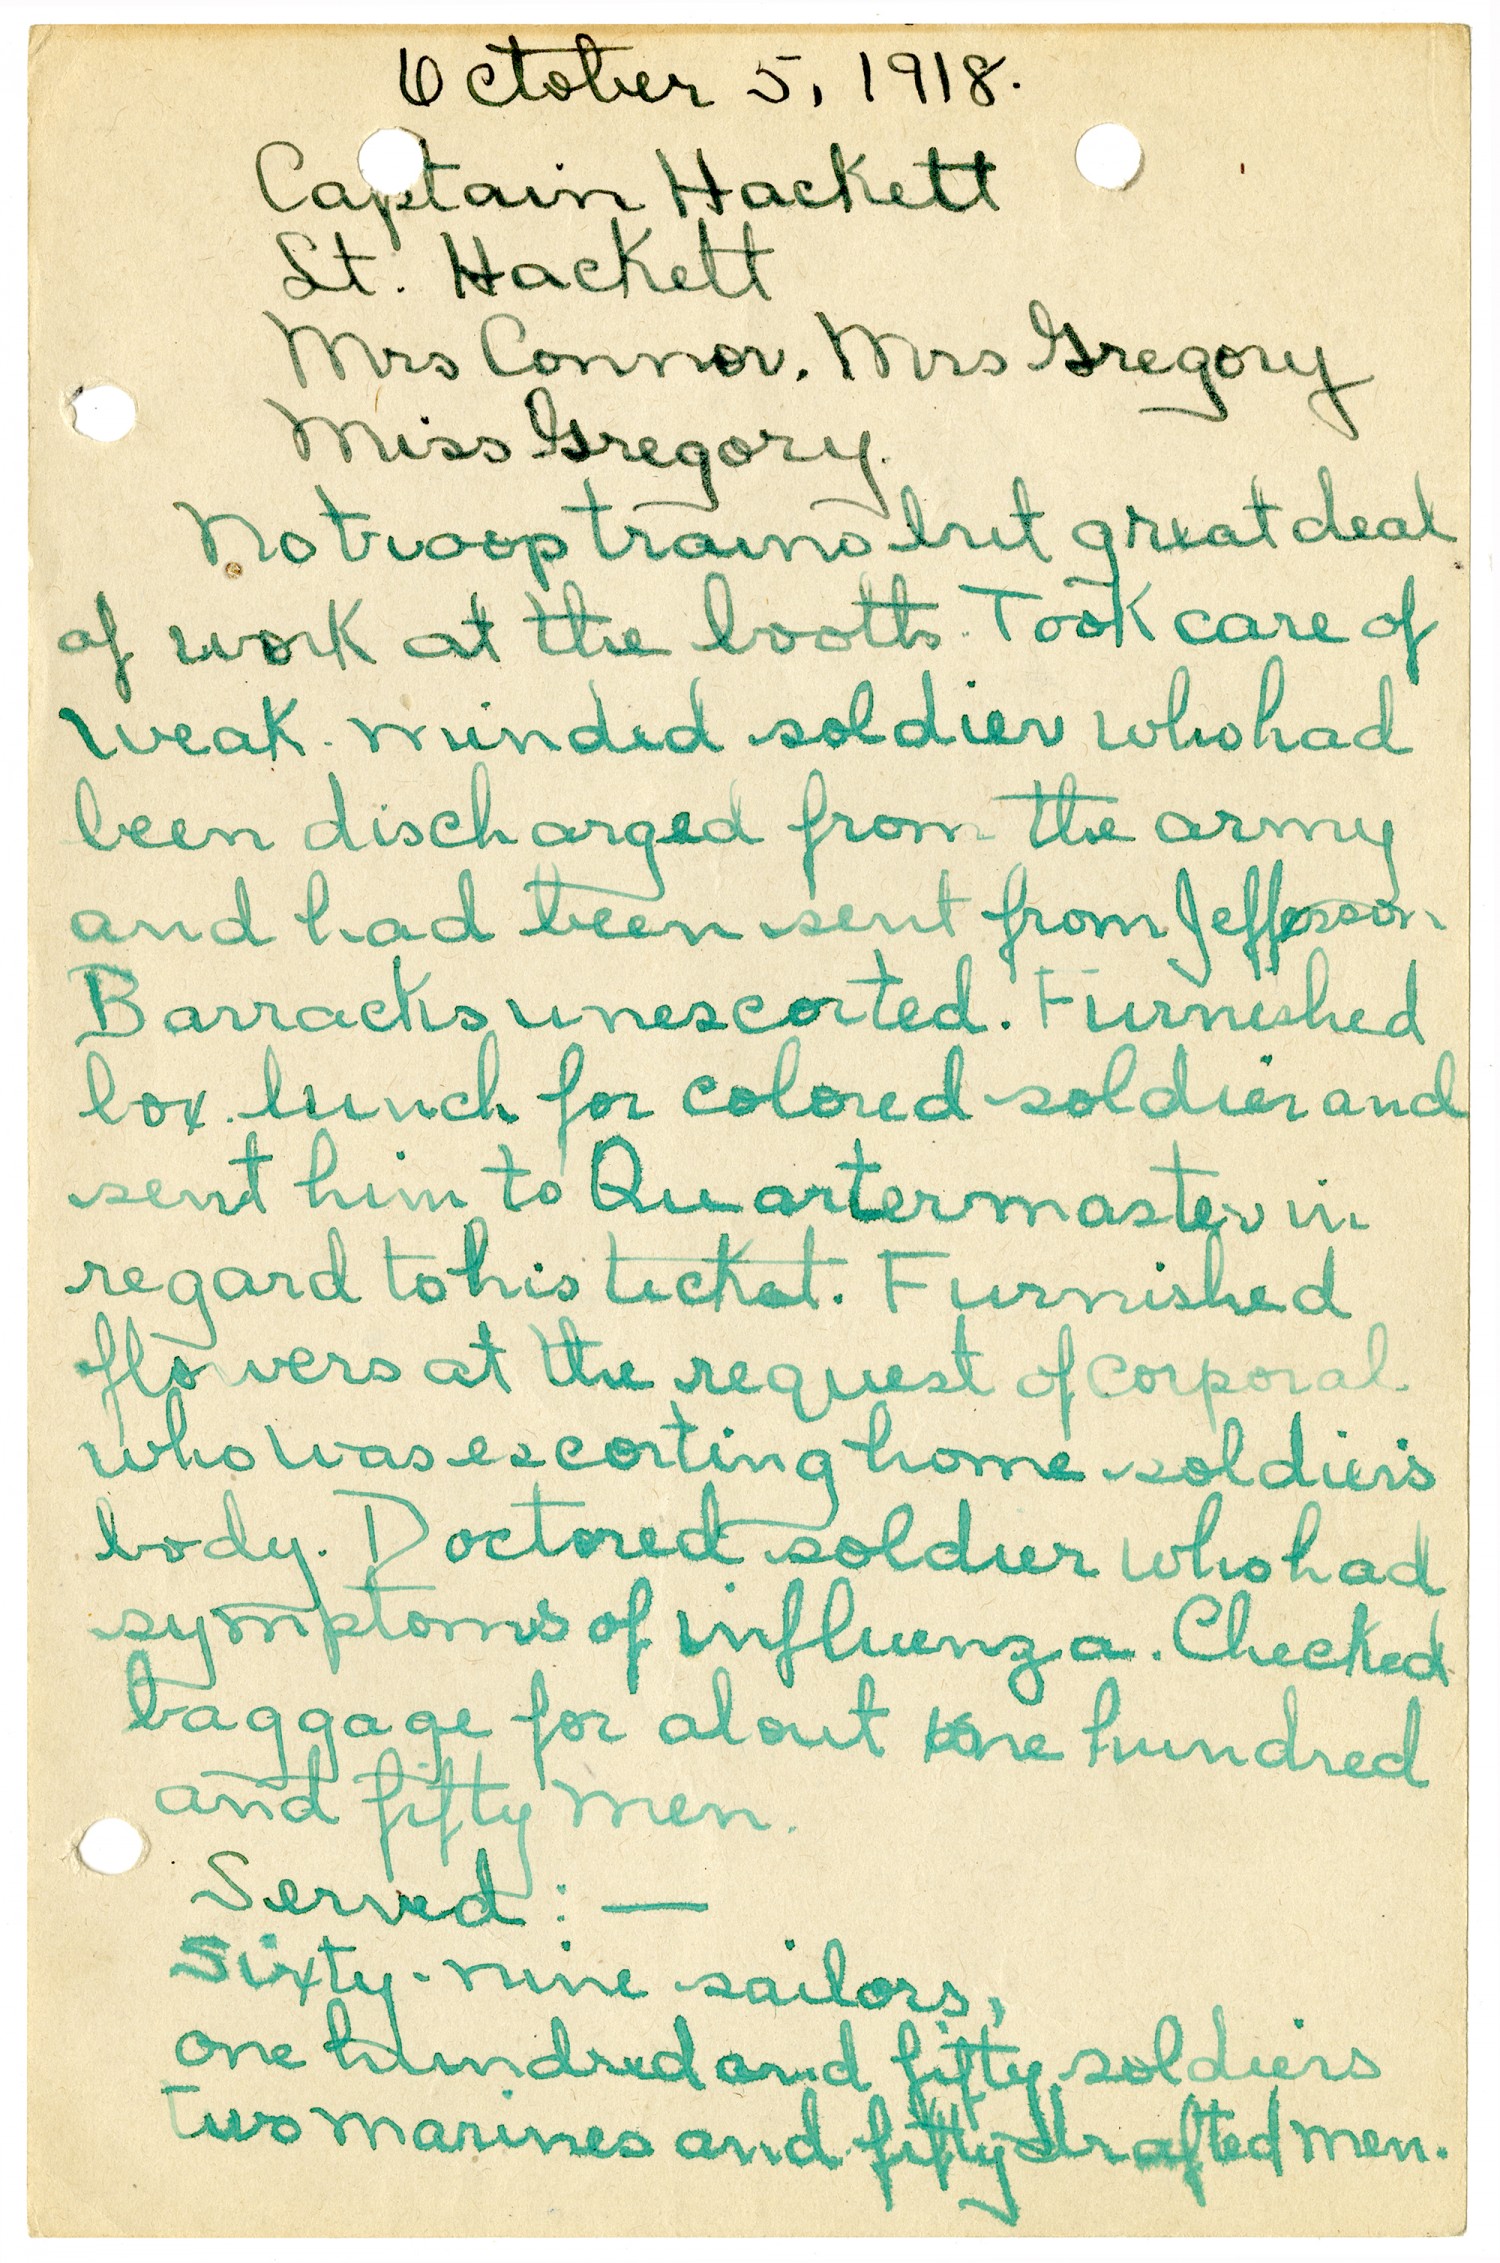 October 5, 1918.
Captain Hackett
Lt. Hackett
Mrs Connor. Mrs Gregory
Miss Gregory.
No troop trains but great deal
of work at the booth. Took care of
weak-minded soldier who had
been discharged from the army
and had been sent from Jefferson
Barracks unescorted. Furnished
box lunch for colored soldier and
sent him to Quartermaster in
regard to his ticket. Furnished
flowers at the request of corporal
who was escorting home soldier's
body. Doctored soldier who had
symptoms of influenza. Checked
baggage for about one hundred
and fifty men.
Served: —
Sixty-nine sailors,
one hundred and fifty soldiers
Two marines and fifty drafted men.